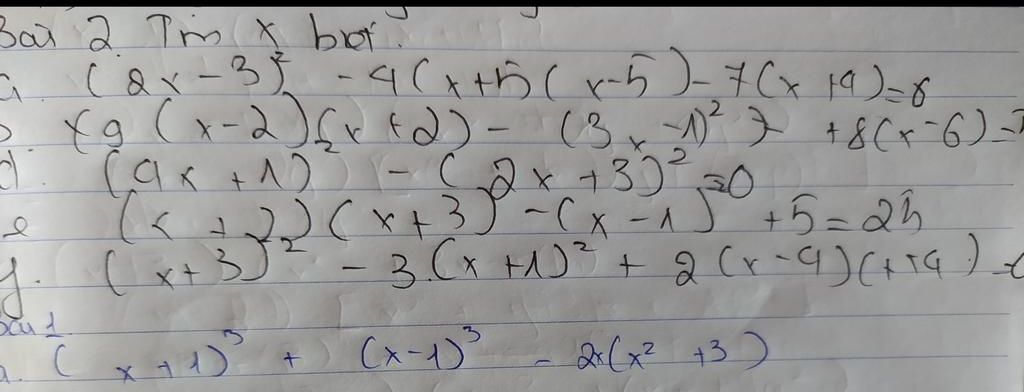 Bài 2. Tìm x biết.
(2x-3)² - 4(x+5(x-5)-7(x+4)=8
9(x-2)(x+2) - (3x-1)² +8(x-6)=
d. (4x+1)² - (2x+3)²=0
e (x+2)(x+3)-(x-1)+5=25
g. (x+3)² - 3.(x+1)² + 2(x-4)(x+4)
Bài 1
a. (x+1)³ + (x-1)³ - 2x(x² +3)